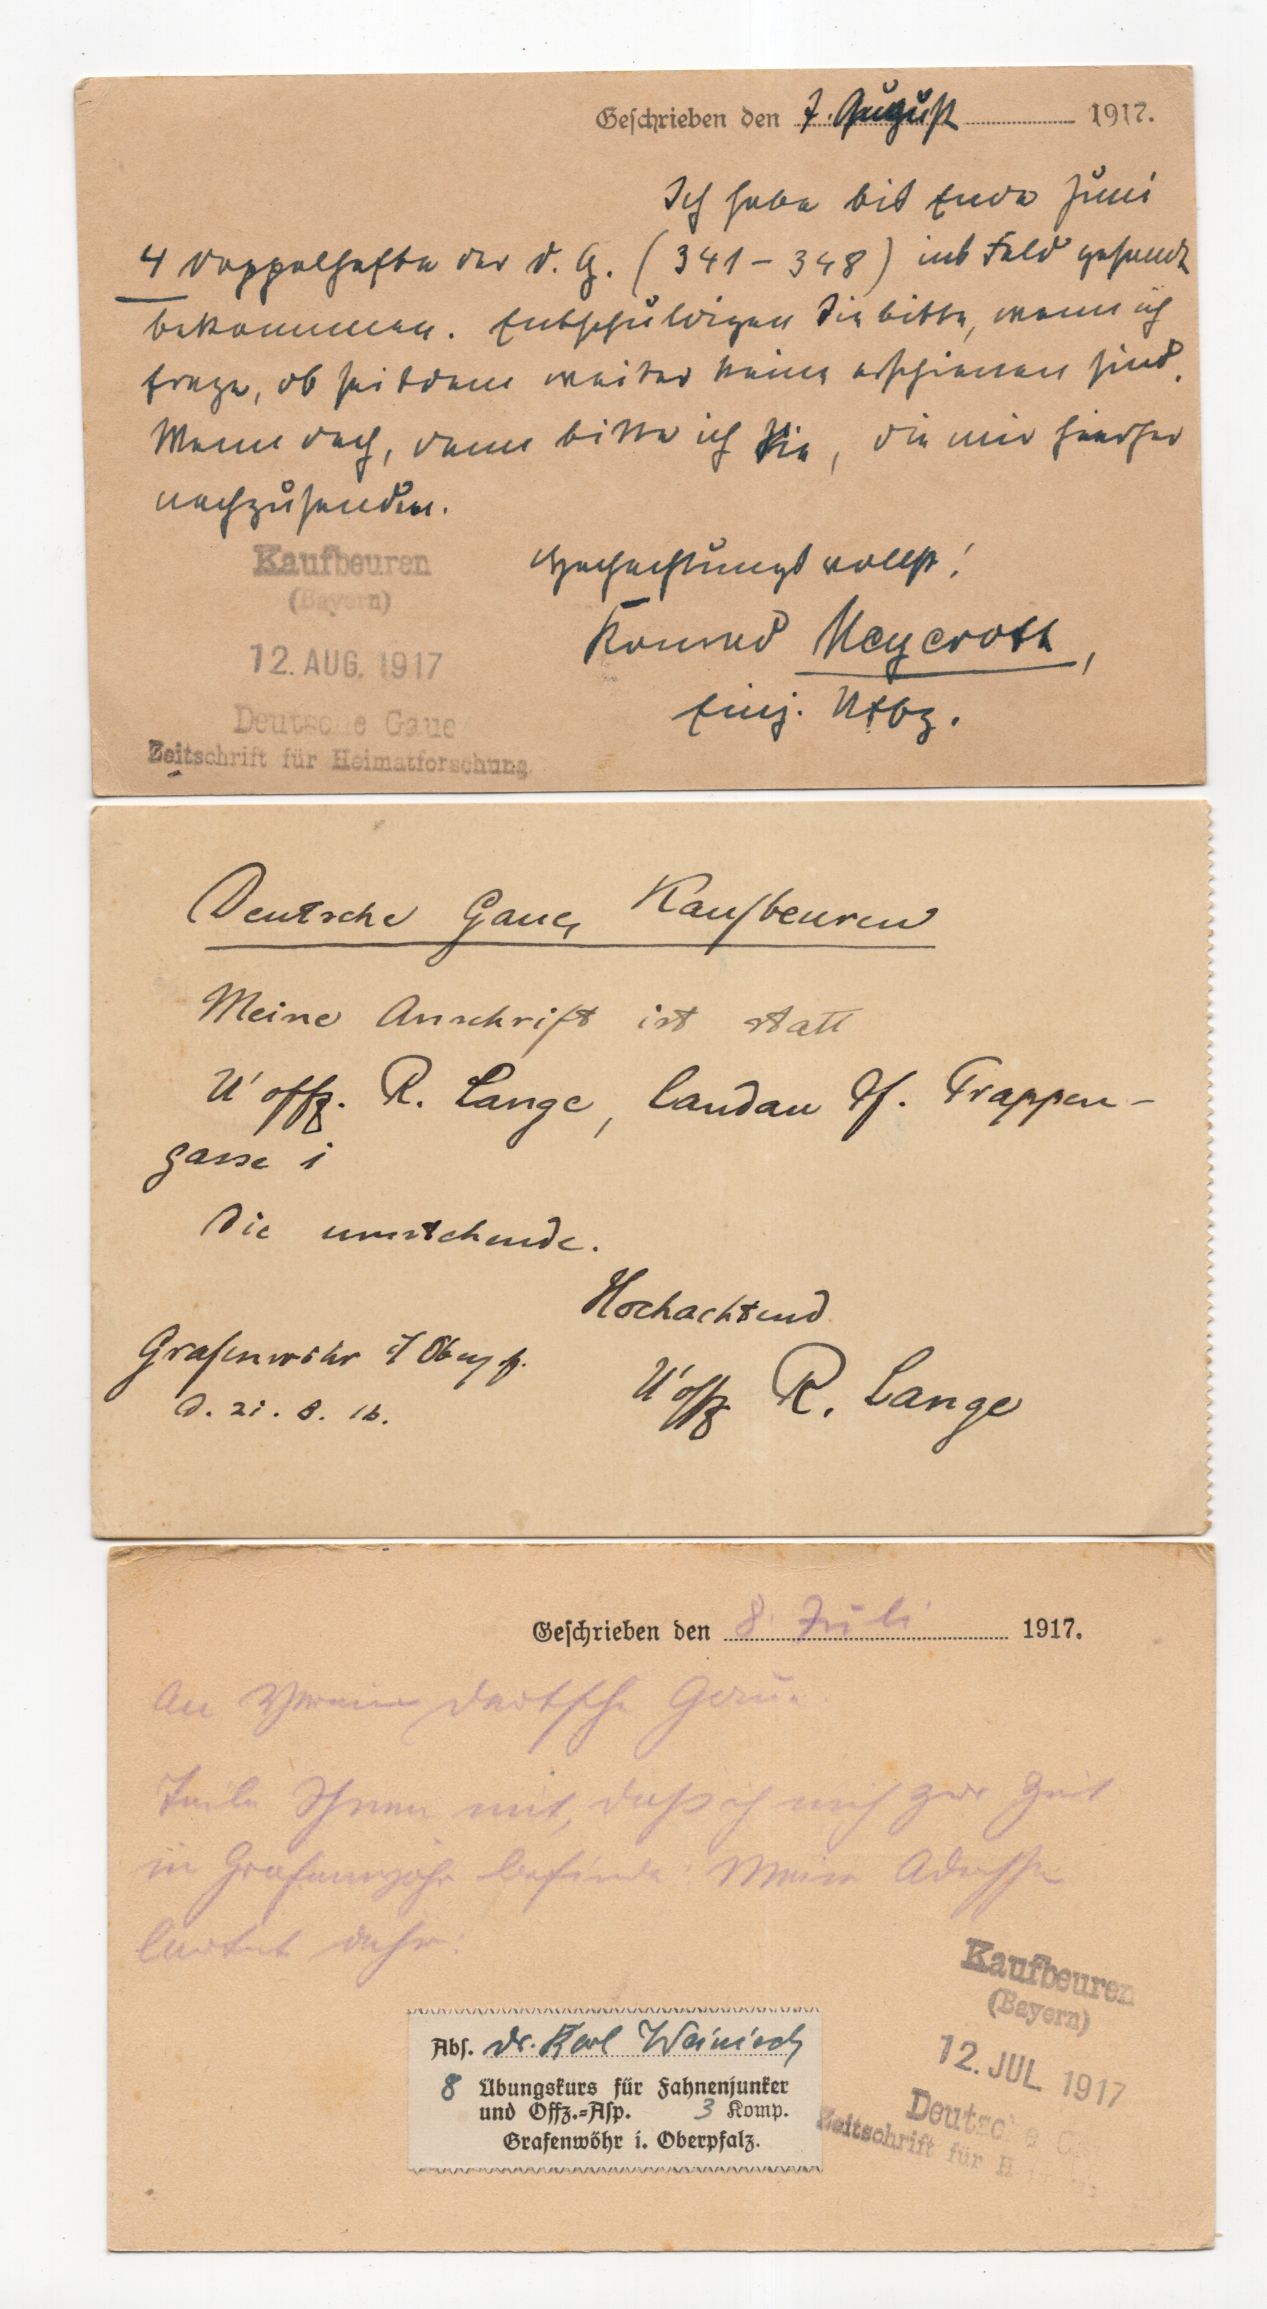 Geschrieben den 7. August 1917.
Ich habe bis Ende Juni
4 Doppelhefte der D. G. (341 - 348) ins Feld gesandt
bekommen. Entschuldigen Sie bitte, wenn ich
frage, ob seitdem weiter keine erschienen sind.
Wenn doch, dann bitte ich Sie, die mir hierher
nachzusenden.
Hochachtungsvollst!
Konrad Meyeroth,
Einj. Utfz.
Kaufbeuren
(Bayern)
12. AUG. 1917
Deutsche Gaue
Zeitschrift für Heimatforschung
Deutsche Gaue, Kaufbeuren
Meine Anschrift ist statt
U'offz. R. Lange, Landau Pf. Trappen-
gasse 1
die umstehende.
Hochachtend
Grafenwöhr i/ Oberpf.
U'offz R. Lange
d. 21. 8. 16.
Geschrieben den 8. Juli 1917.
An Verein Deutsche Gaue.
Teile Ihnen mit, daß ich mich zur Zeit
in Grafenwöhr befinde. Meine Adresse
lautet daher:
Abs. Dr. Karl Weinisch
8 Übungskurs für Fahnenjunker
und Offz.=Asp. 3 Komp.
Grafenwöhr i. Oberpfalz.
Kaufbeuren
(Bayern)
12. JUL 1917
Deutsche G
Zeitschrift für H